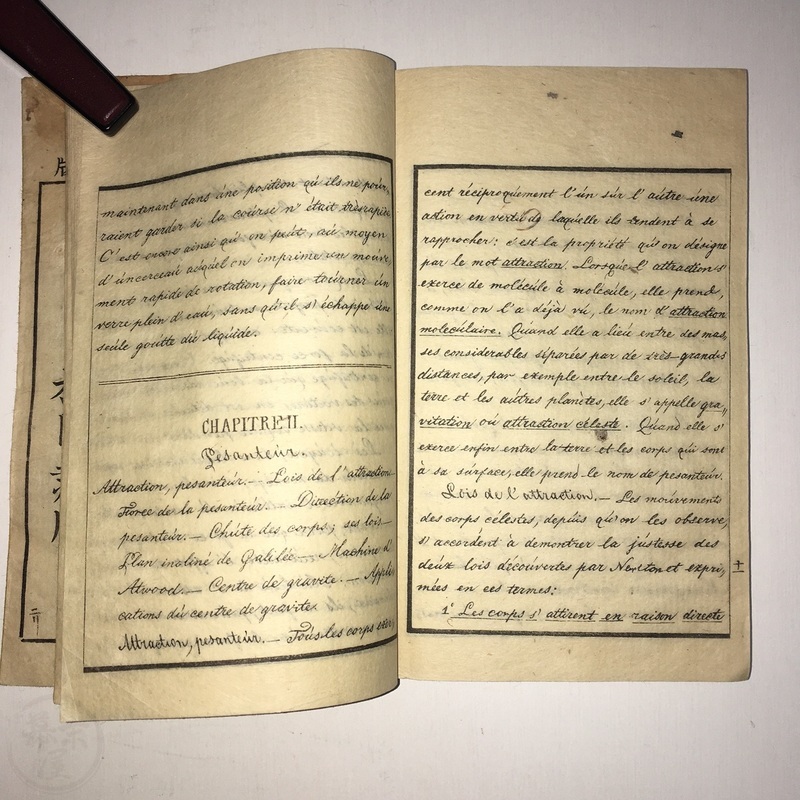 maintenant dans une position qu'ils ne pour,
raient garder si la course n'était très rapide
C'est encore ainsi qu'on peut, au moyen
d'un cerceau auquel on imprime un mouve
ment rapide de rotation, faire tourner un
verre plein d'eau, sans qu'il s'échappe une
seule goutte du liquide.
CHAPITRE II.
Pesanteur.
Attraction, pesanteur. — Lois de l'attraction
Force de la pesanteur. — Direction de la
pesanteur. — Chute des corps; ses lois —
Plan incliné de Galilée — Machine d'
Atwood. — Centre de gravite. — Appli
cations du centre de gravite.
Attraction, pesanteur. — Tous les corps exer
cent réciproquement l'un sur l'autre une
action en vertu de laquelle ils tendent à se
rapprocher: c'est la propriété qu'on désigne
par le mot attraction. Lorsque l'attraction s'
exerce de molécule à molécule, elle prend,
comme on l'a déjà vu, le nom d'attraction
moleculaire. Quand elle a lieu entre des mas,
ses considerables séparées par de très grandes
distances, par exemple entre le soleil, la
terre et les autres planètes, elle s'appelle gra,,
vitation ou attraction céleste. Quand elle s'
exerce enfin entre la terre et les corps qui sont
à sa surface, elle prend le nom de pesanteur.
Lois de l'attraction. — Les mouvements
des corps célestes, depuis qu'on les observe,
s'accordent à démontrer la justesse des
deux lois découvertes par Newton et expri,
mées en ces termes:
1° Les corps s'attirent en raison directe
十一